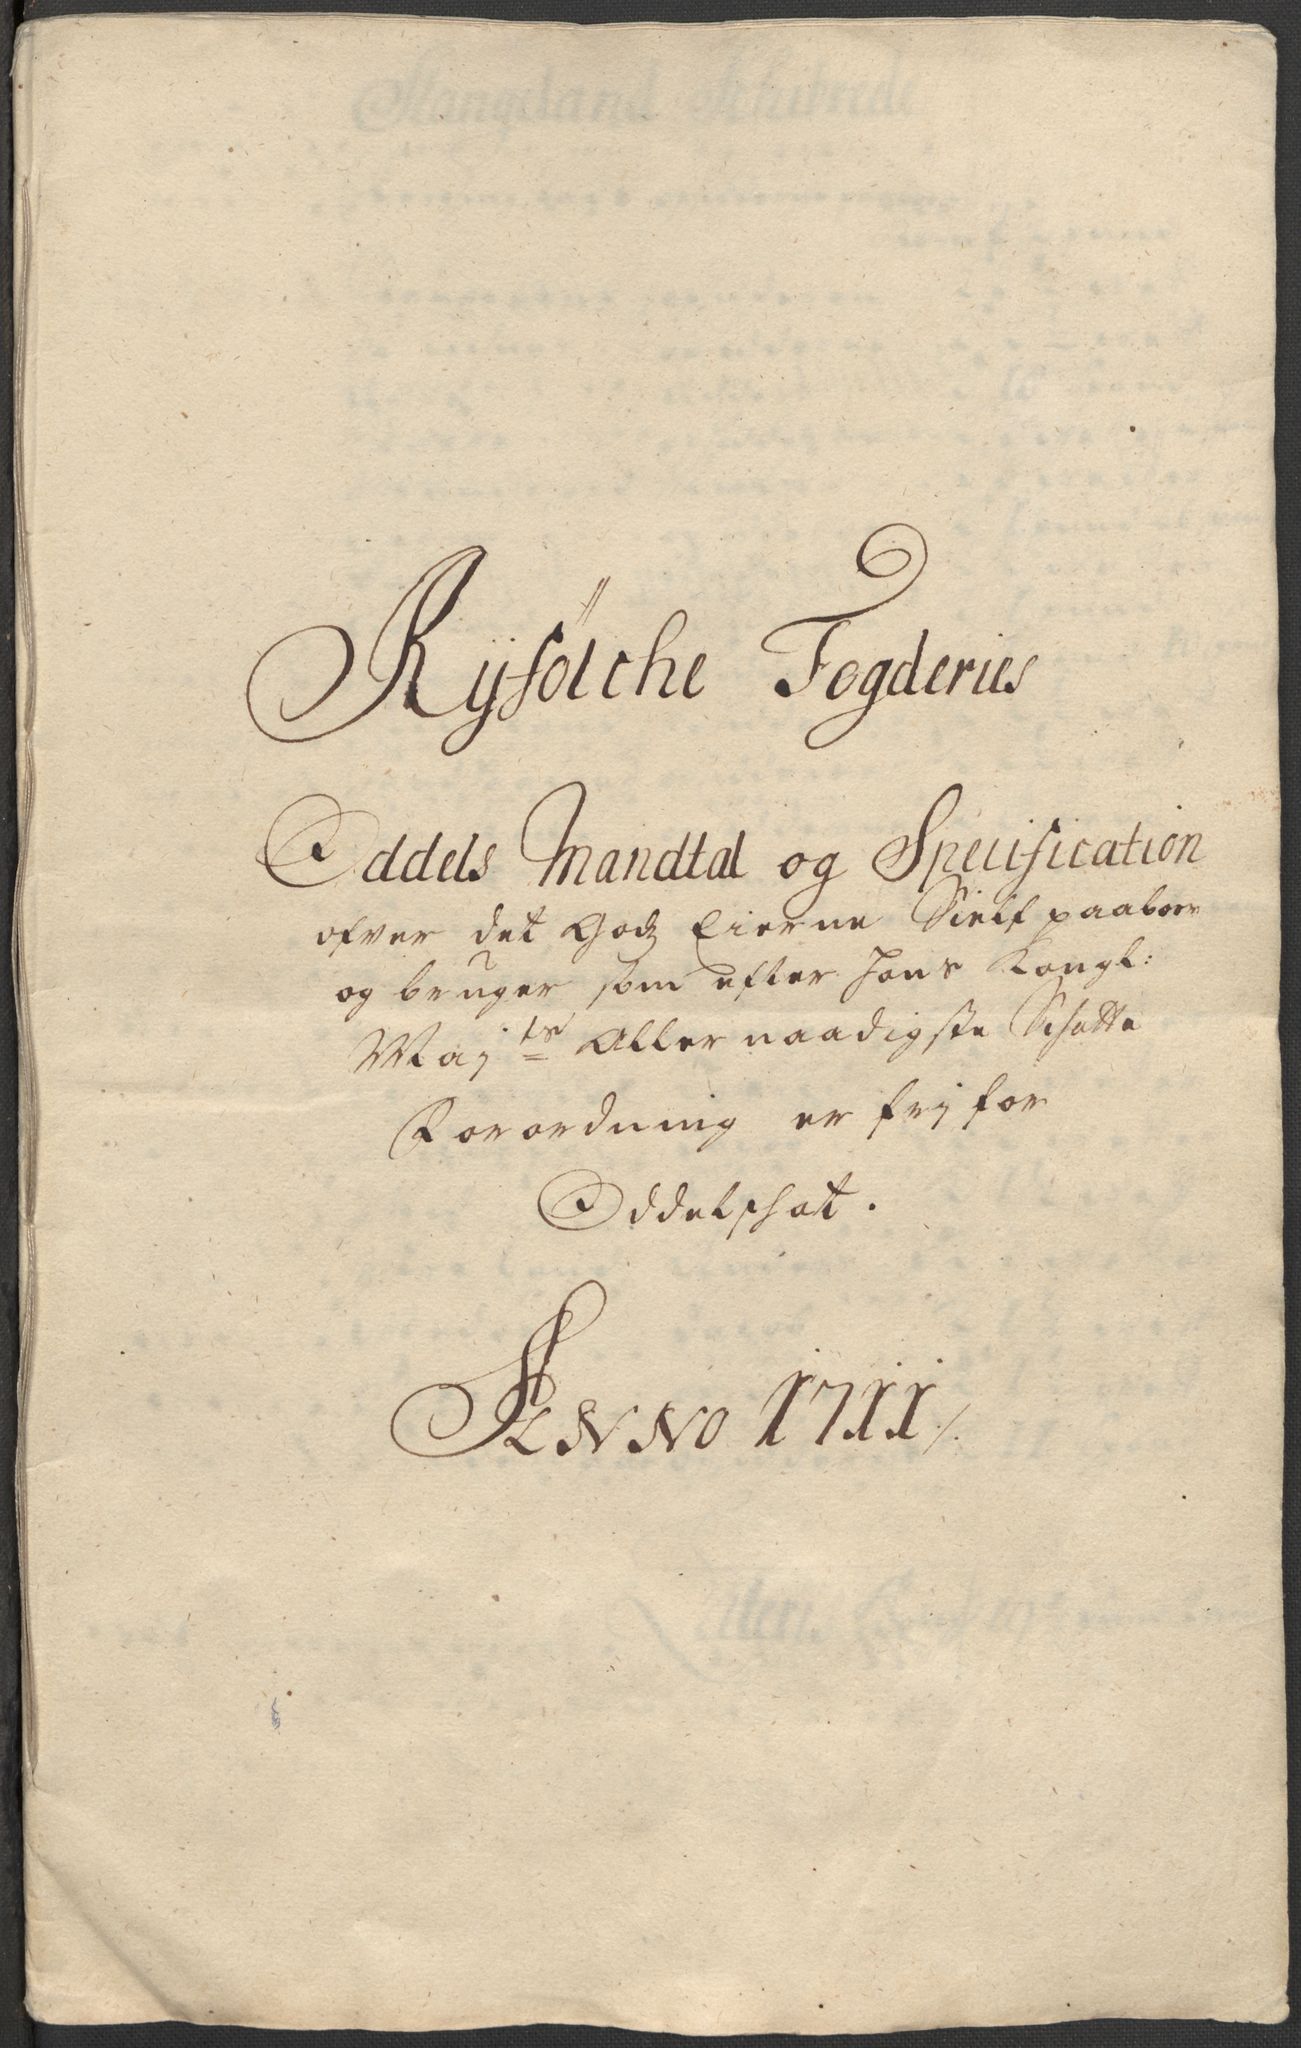 Rÿfölche Fogderies
Oddels Mandtal og Specification
ofver det Godz Eierne Sielf paaboer
og bruger som efter Hans Kongl:
May:ts Allernaadigste Schatte
Forordning er frj for
Oddelschat.
ANNO 1711/.